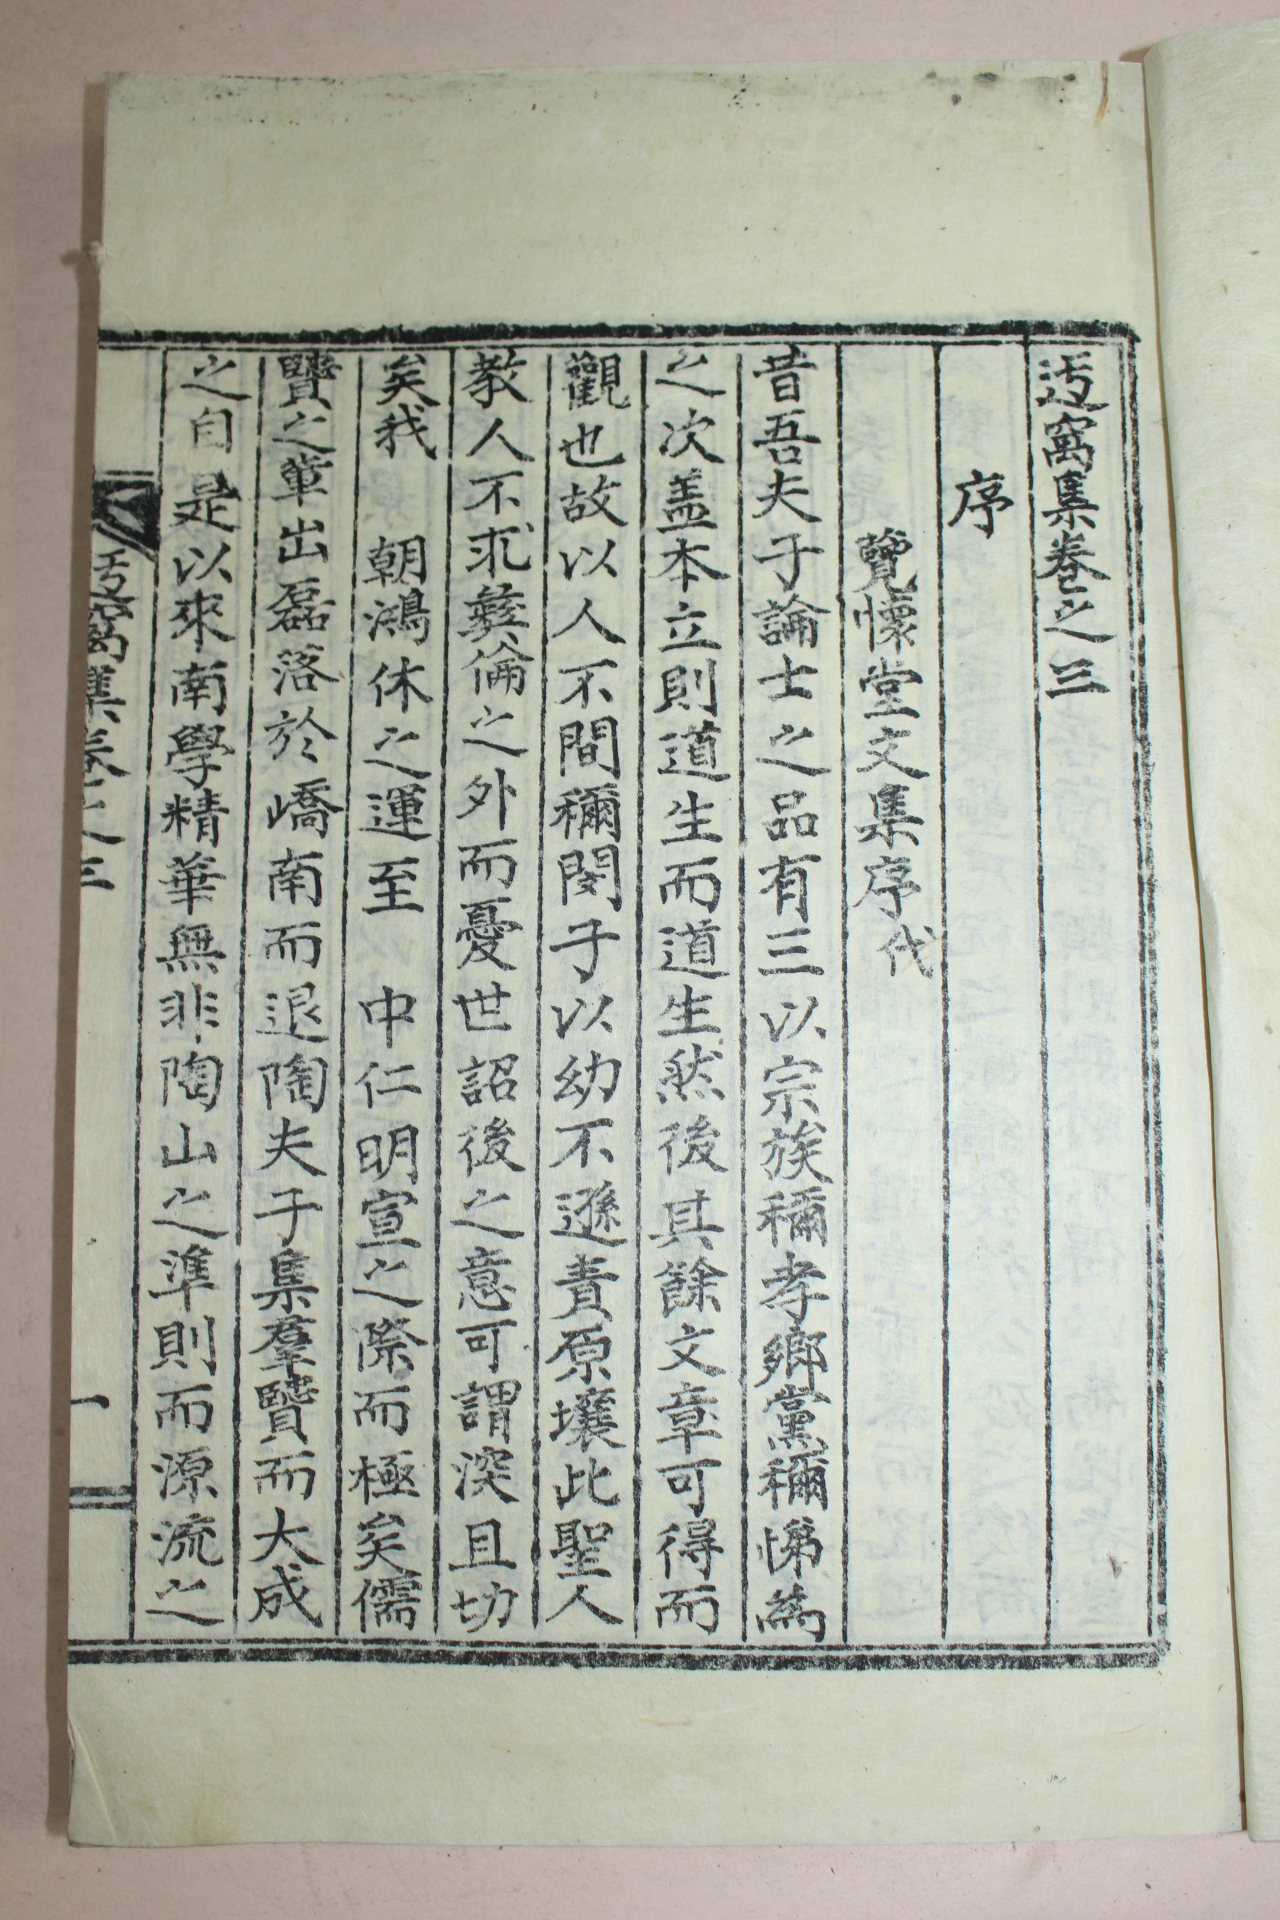 迃窩集卷之三
序
覽懷堂文集序代
昔吾夫子論士之品有三以宗族稱孝鄕黨稱悌爲
之次盖本立則道生而道生然後其餘文章可得而
觀也故以人不間稱閔子以幼不遜責原壤此聖人
敎人不求彝倫之外而憂世詔後之意可謂深且切
矣我 朝鴻休之運至 中仁明宣之際而極矣儒
賢之軰出磊落於嶠南而退陶夫子集羣賢而大成
之自是以來南學精華無非陶山之準則而源流之
迃窩集卷之三
一